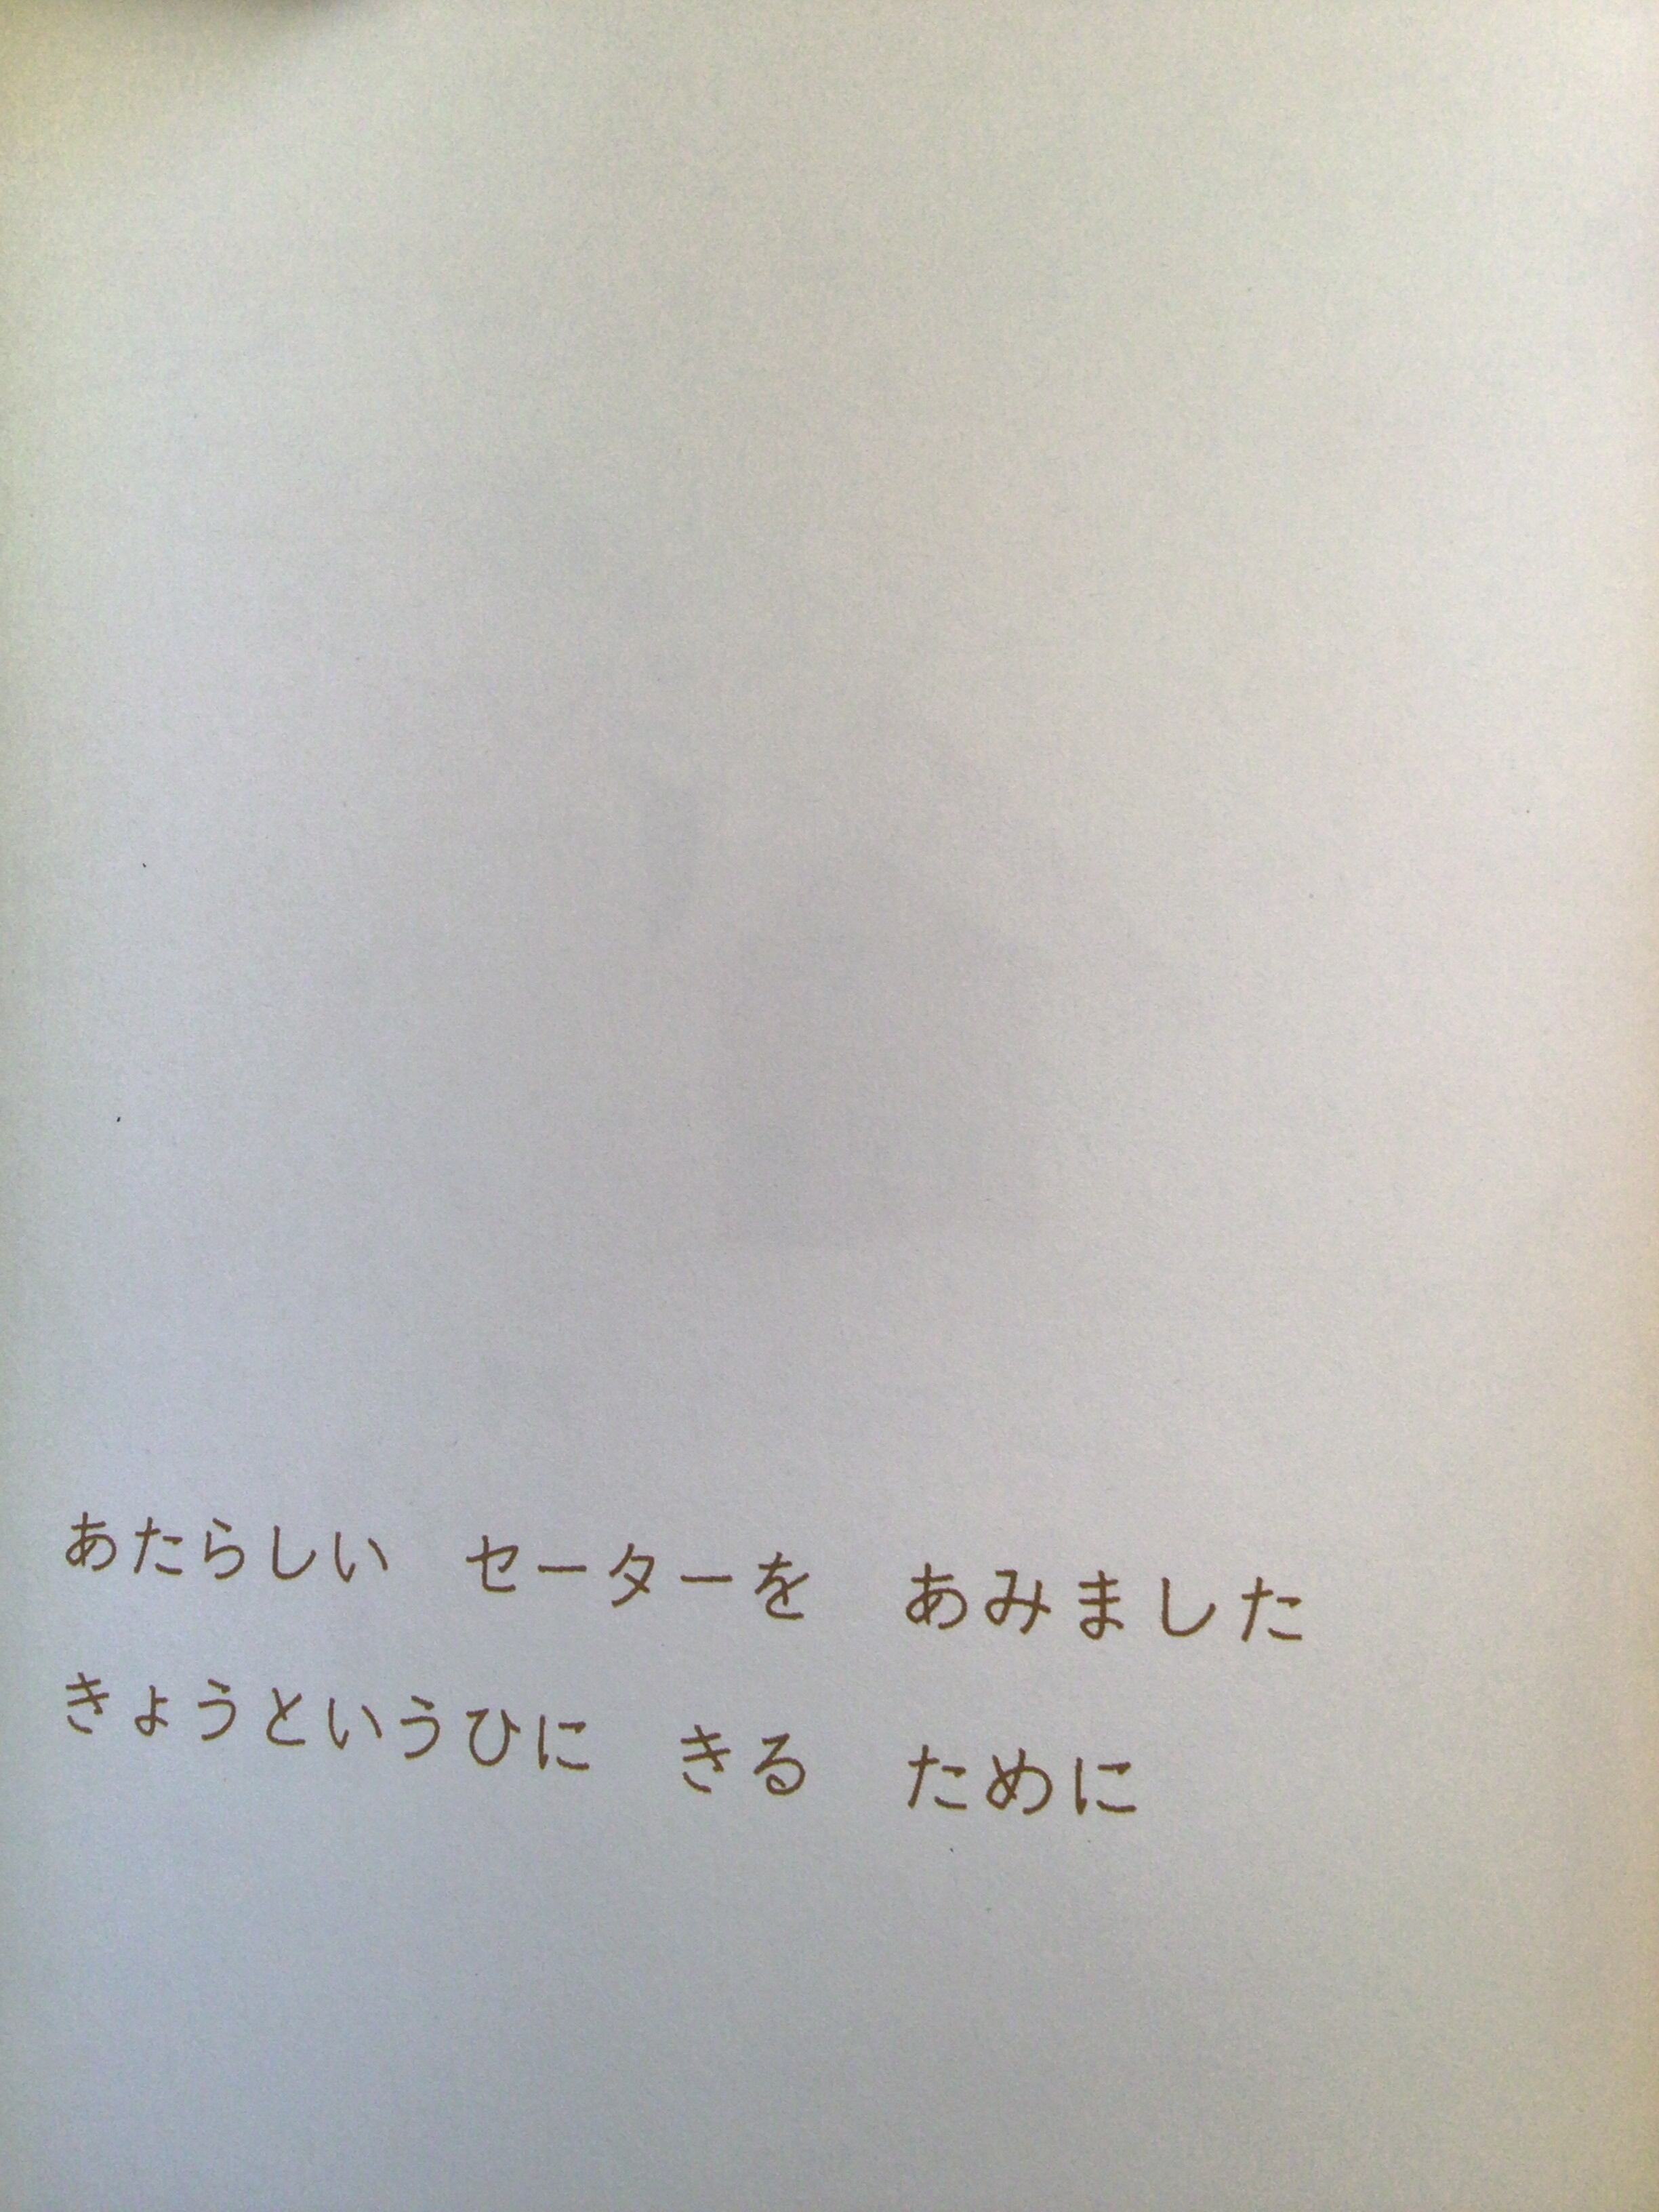 あたらしい　セーターを　あみました
きょうというひに　きる　ために